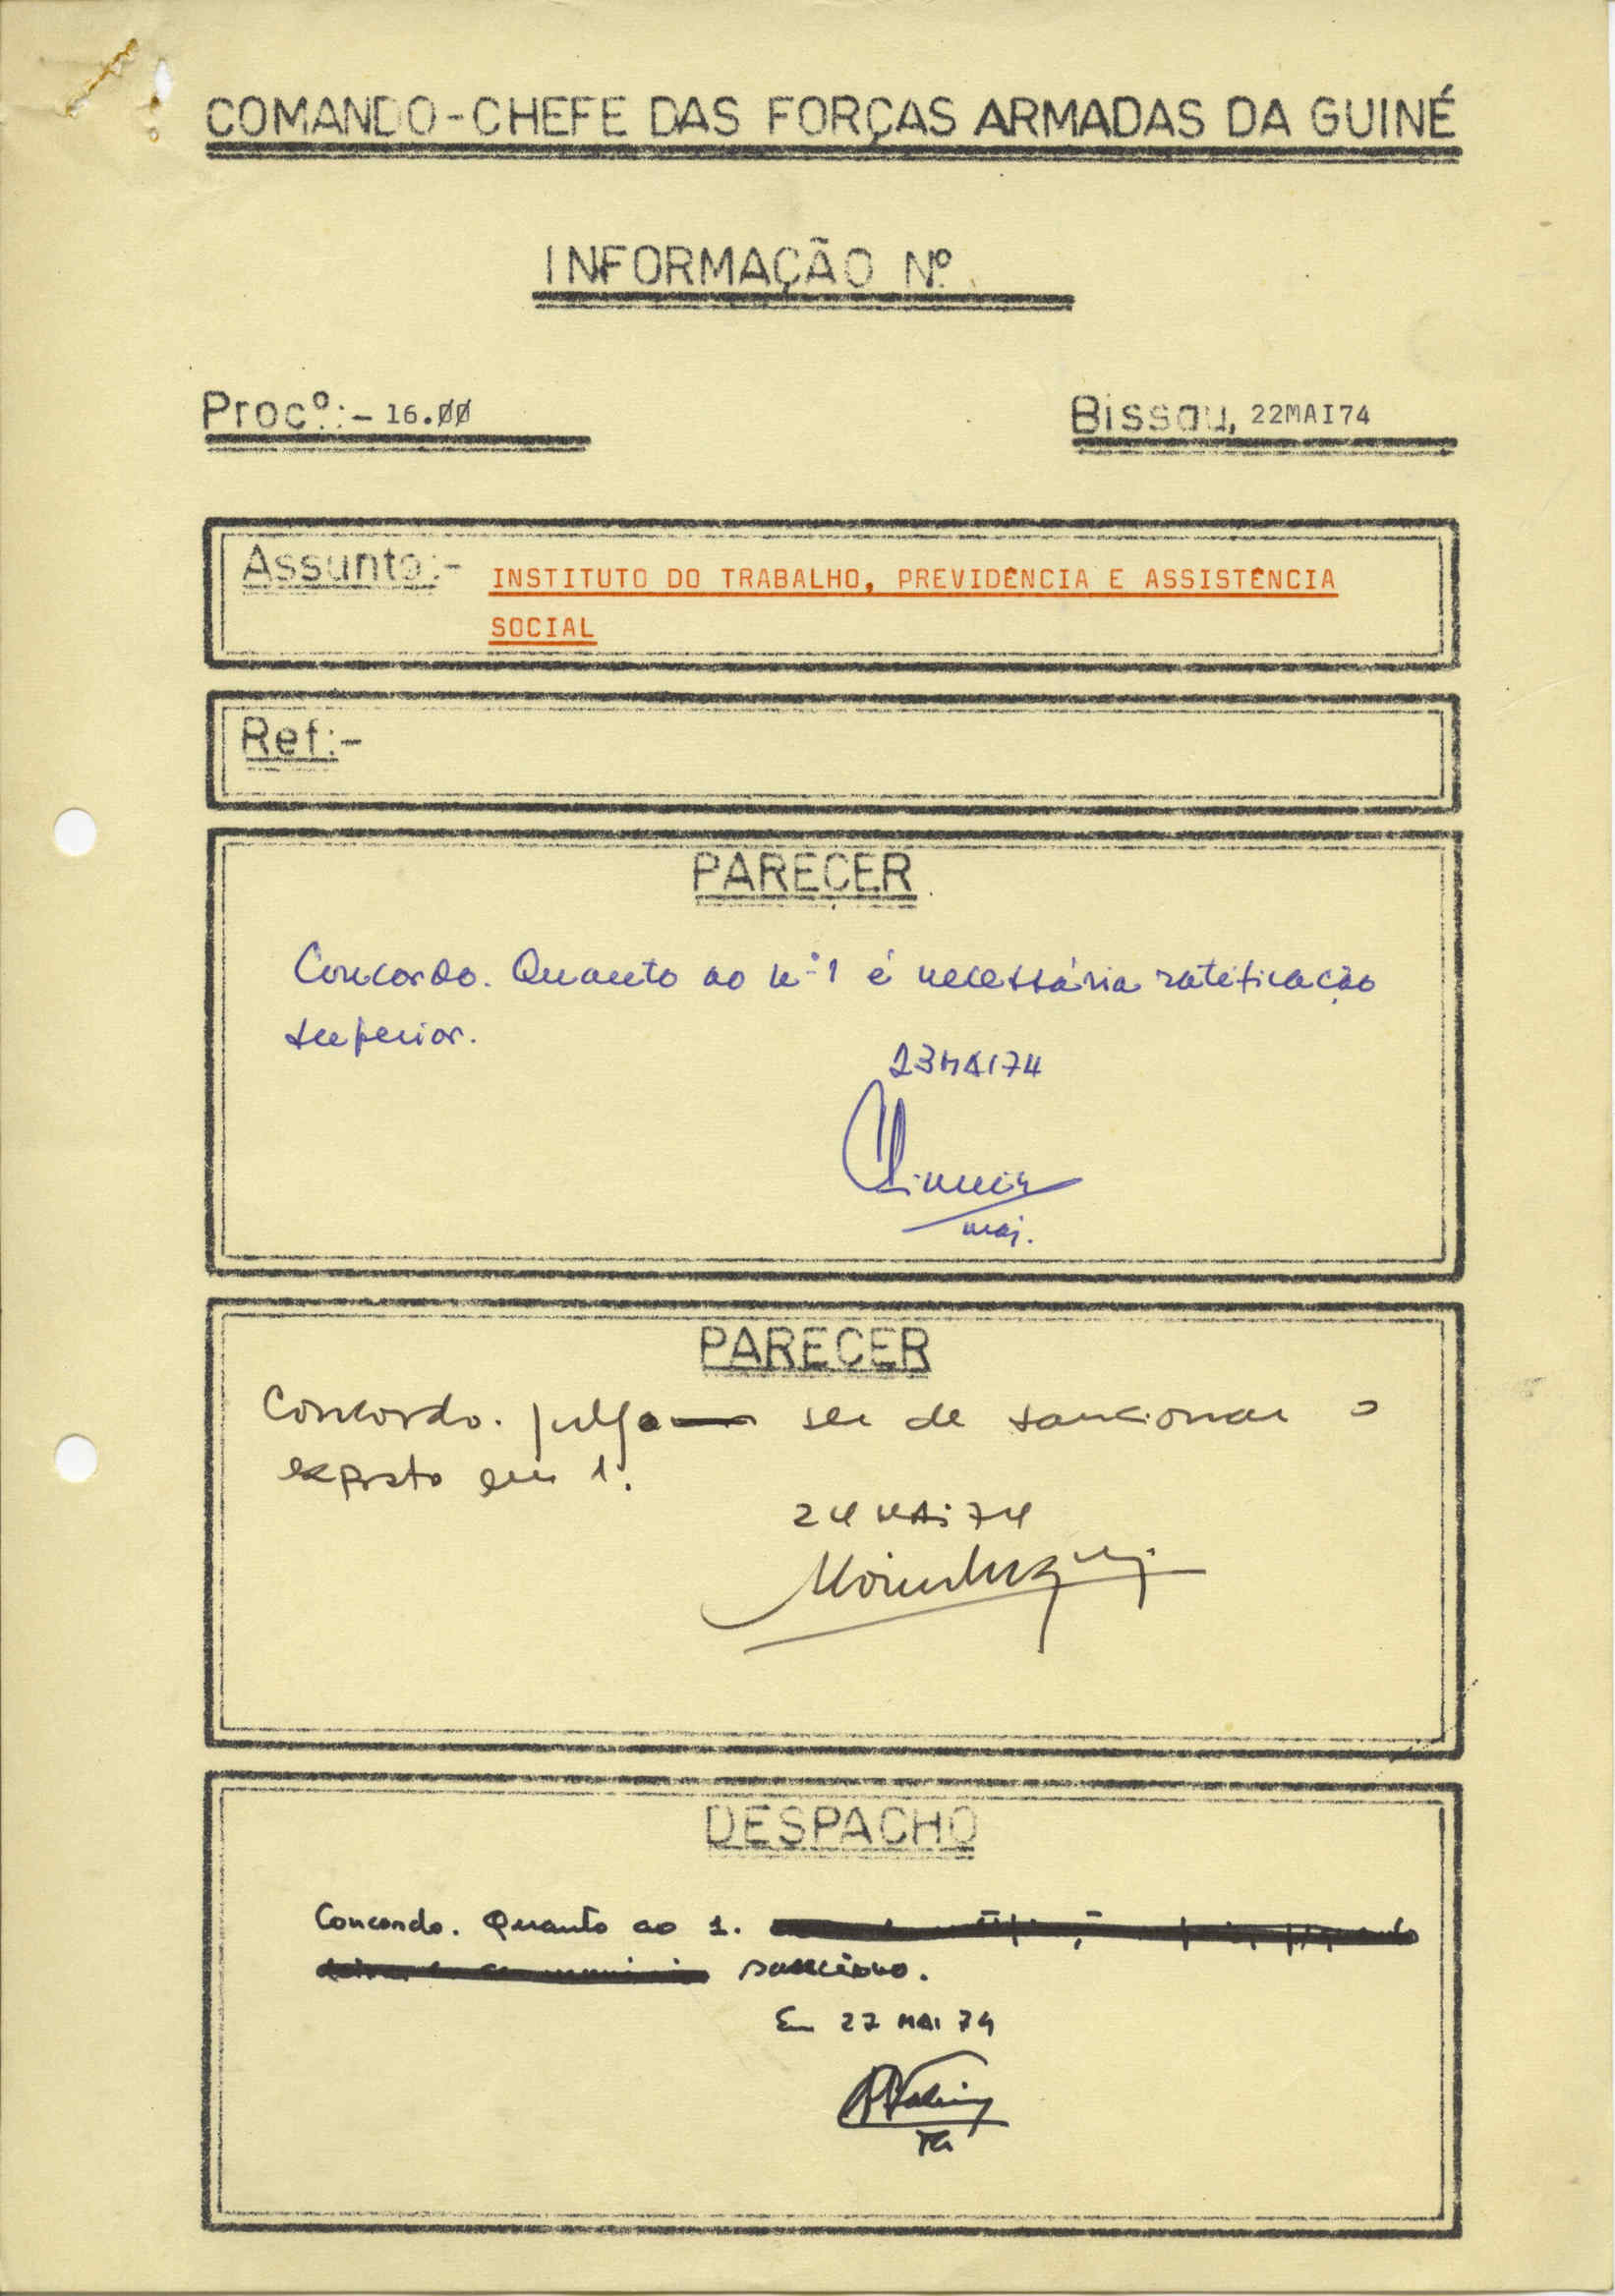 COMANDO-CHEFE DAS FORÇAS ARMADAS DA GUINÉ
INFORMAÇÃO Nº
Procº:- 16.00
Bissau, 22MAI74
Assunto:- INSTITUTO DO TRABALHO, PREVIDÊNCIA E ASSISTÊNCIA
SOCIAL
Ref:-
PARECER
Concordo. Quanto ao nº 1 é necessária ratificação
superior.
23MAI74
maj.
PARECER
Concordo. julgo ser de sancionar o
exposto em 1.
24 MAI 74
DESPACHO
Concordo. Quanto ao 1.
sanciono.
Em 27 MAI 74